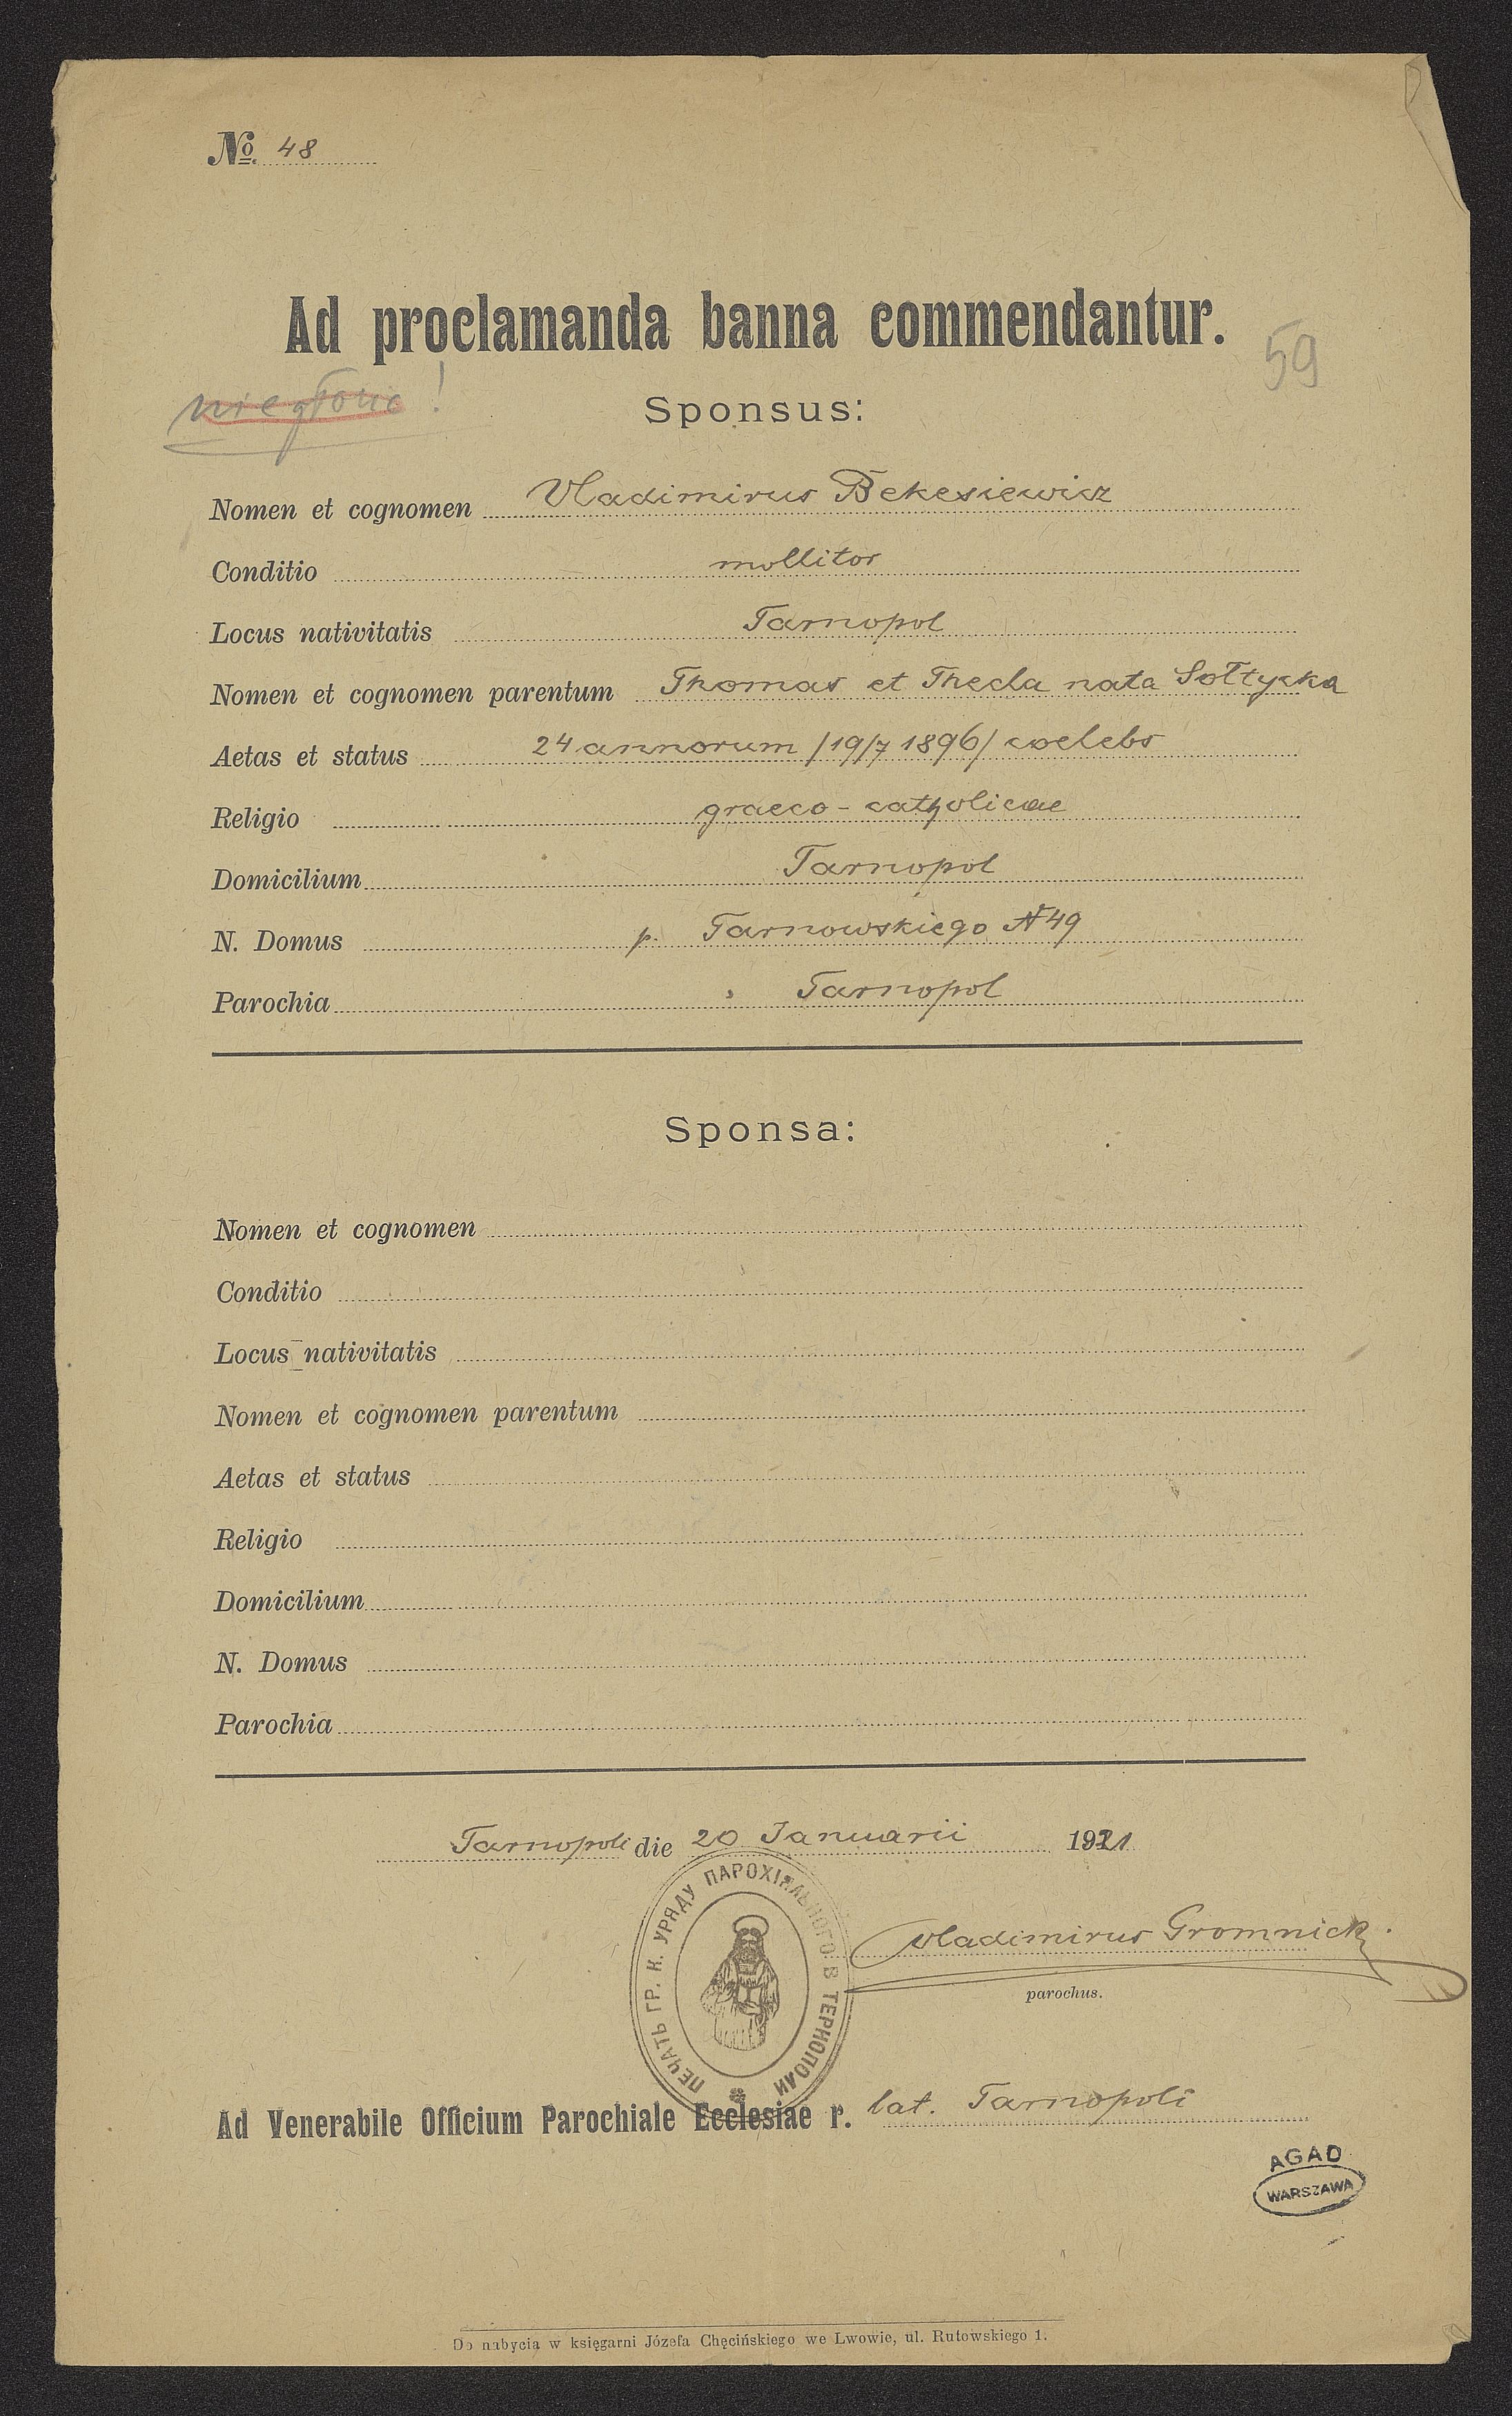 № 48
Ad proclamanda banna commendantur.
59
Sponsus:
Nomen et cognomen Vladimirus Bekesiewicz
Conditio mollitor
Locus nativitatis Tarnopol
Nomen et cognomen parentum Thomas et Thecla nata Sołtyska
Aetas et status 24 annorum /19/7 1896/ coelebs
Religio graeco-catholicae
Domicilium Tarnopol
N. Domus p. Tarnowskiego N 49
Parochia Tarnopol
Sponsa:
Nomen et cognomen
Conditio
Locus nativitatis
Nomen et cognomen parentum
Aetas et status
Religio
Domicilium
N. Domus
Parochia
Tarnopoli die 20 Januarii 1921
ПЕЧАТЬ ГР. К. УРЯДУ ПАРОХІЯЛЬНОГО В ТЕРНОПОЛИ
Vladimirus Gromnicki
parochus.
Ad Venerabile Officium Parochiale Ecclesiae r. lat. Tarnopoli
AGAD
WARSZAWA
Do nabycia w księgarni Józefa Chęcińskiego we Lwowie, ul. Rutowskiego 1.